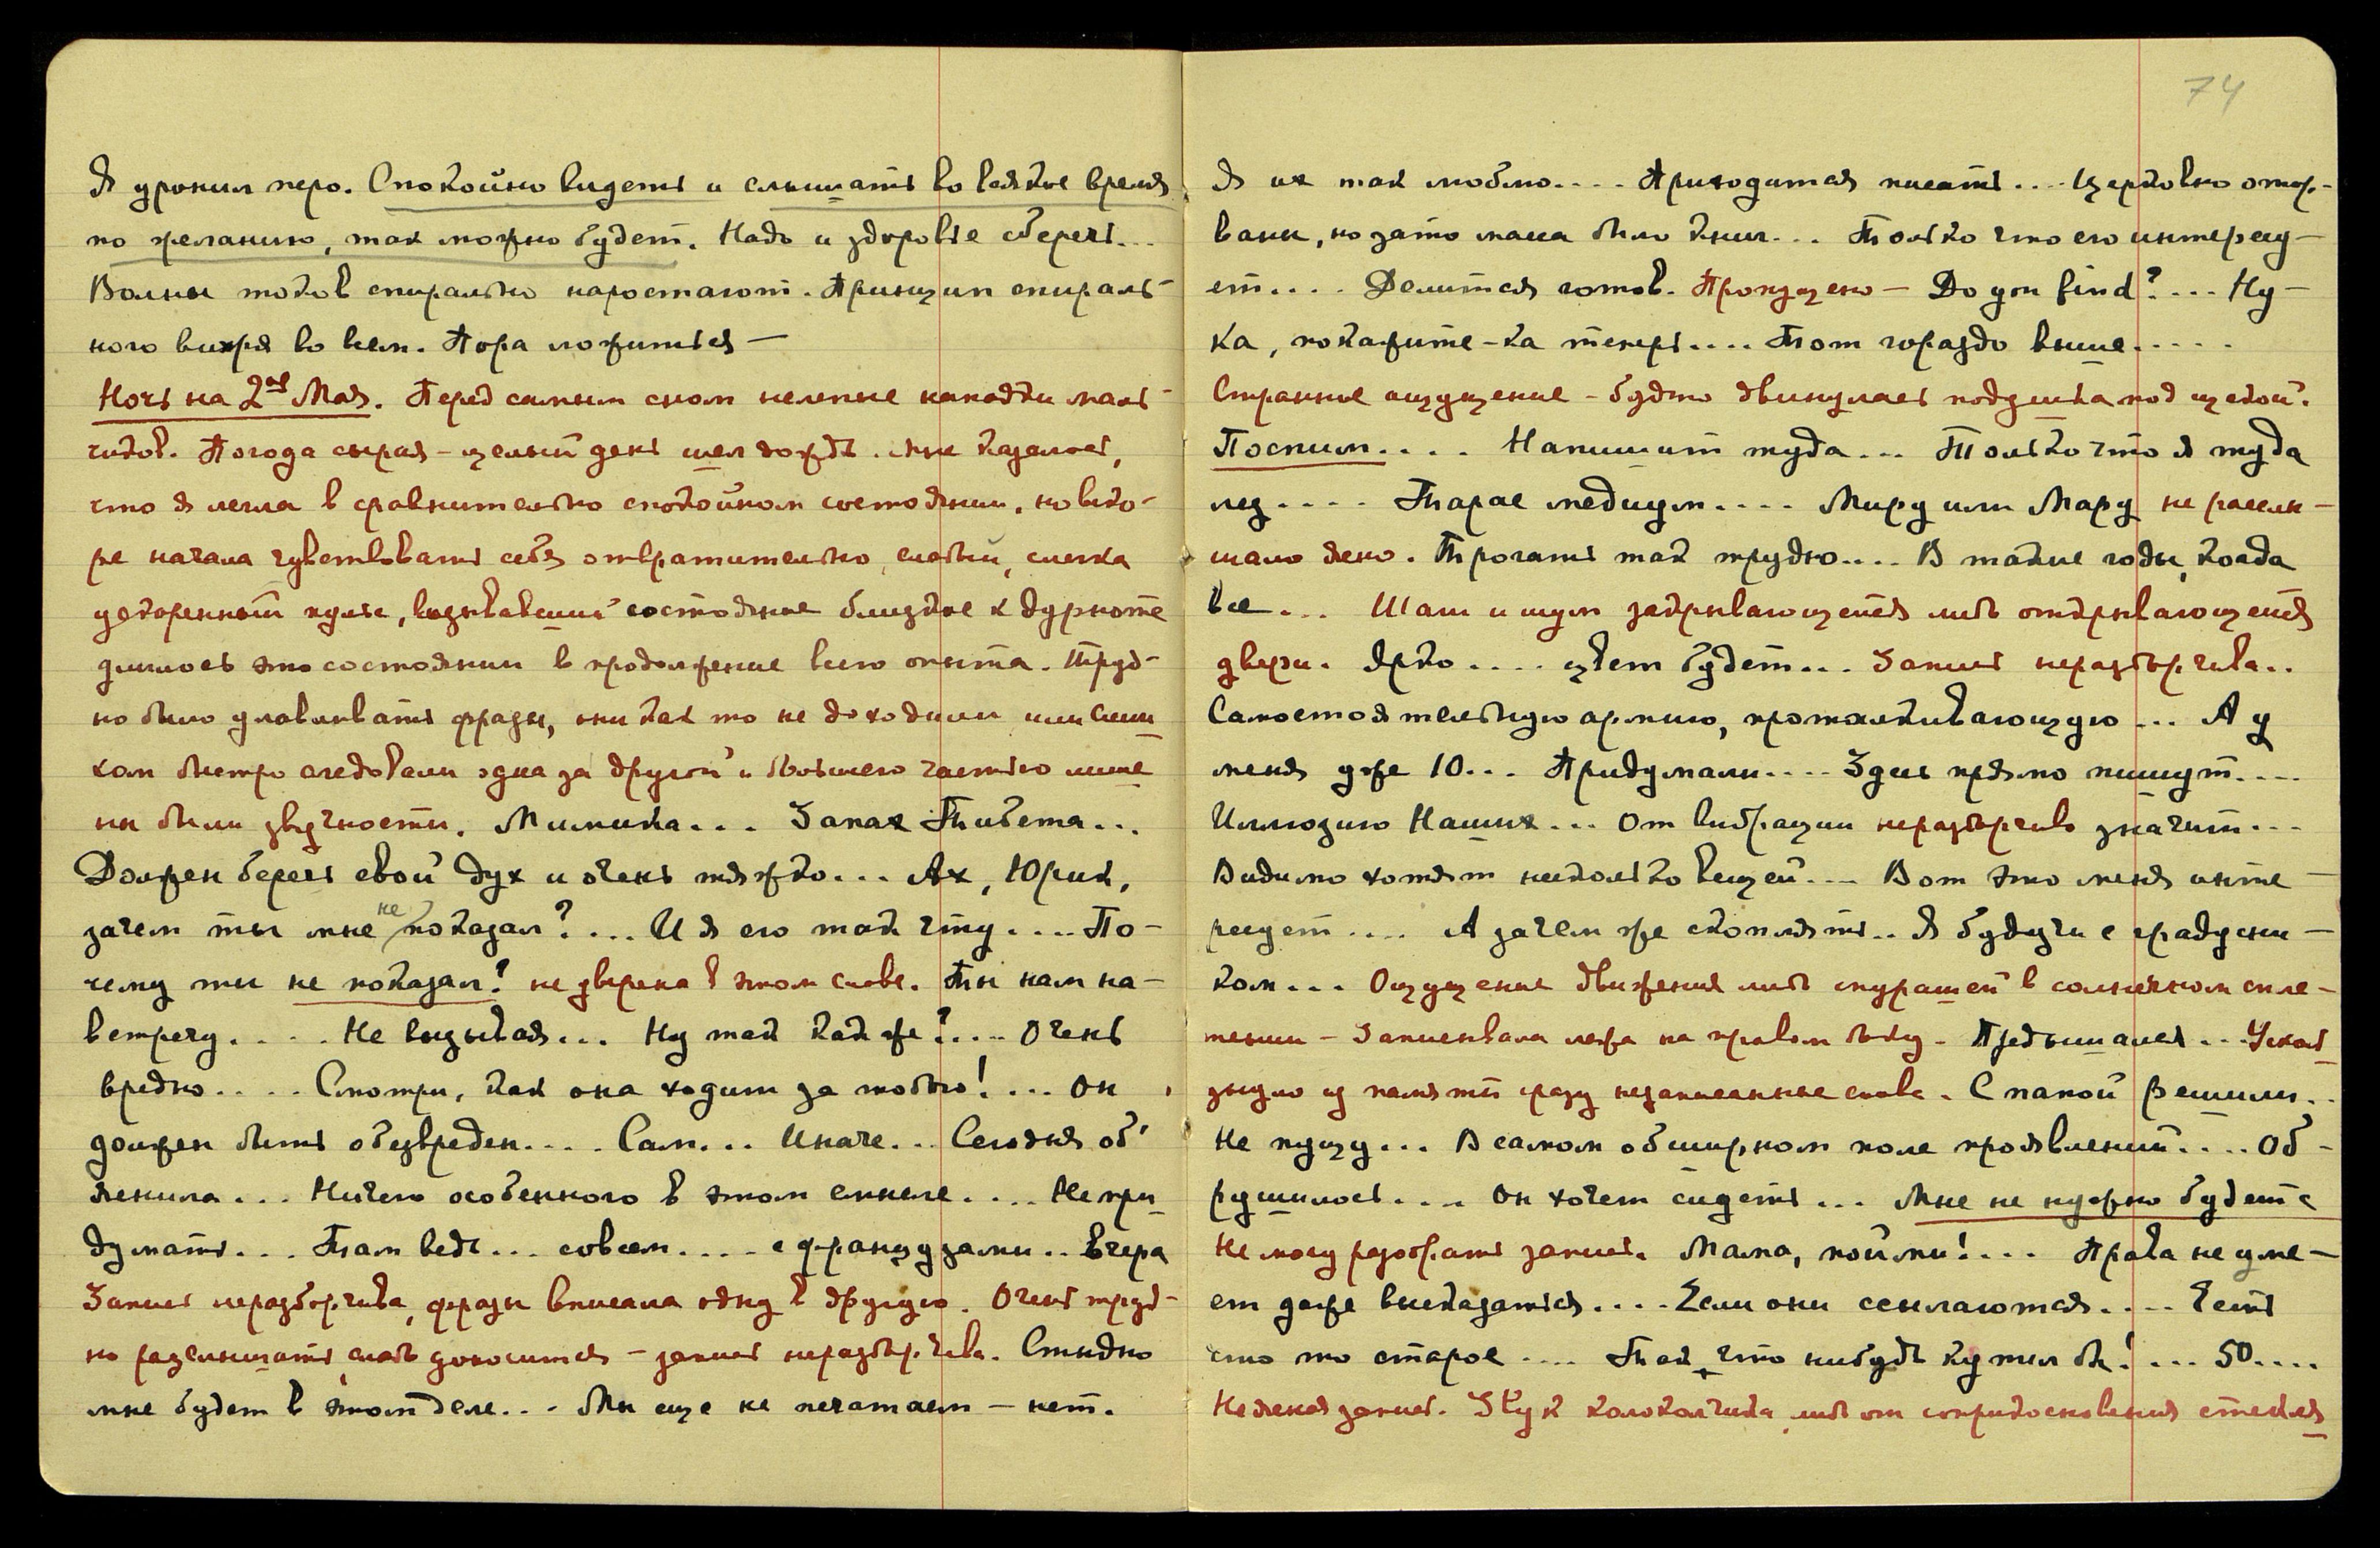 Я уронил перо. Спокойно видеть и слышать во всякое время
по желанию, так можно будет. Надо и здоровье сберечь...
Волны токов спирально наростают. Принцип спираль-
ного вихря во всем. Пора ложиться —
Ночь на 2ое Мая. Перед самым сном нелепые нападки маль-
чиков. Погода сырая – целый день шел дождь. Мне казалось,
что я легла в сравнительно спокойном состоянии, но вско-
ре начала чувствовать себя отвратительно, слабый, слегка
ускоренный пульс, вызвавший состояние близкое к дурноте
длилось это состояние в продолжение всего опыта. Труд-
но было улавливать фразы, они как то не доходили или слиш
ком быстро следовали одна за другой и большею частью лише
ны были звучности. Мимика... Запах Тибета...
Должен беречь свой дух и очень тяжко... Ах, Юрик,
зачем ты мне не показал?... И я его так чту.... По-
чему ты не показал? не уверена в этом слове. Ты нам на-
встречу..... Не вызывая... Ну так как же?.... Очень
вредно..... Смотри, как она ходит за тобою!... Он
должен быть обезвреден..... Сам... Иначе... Сегодня об'
яснила... Ничего особенного в этом смысле.... Не при
думать... Там ведь... совсем.... с французами.. Вчера
Запись неразборчива, фразы вписала одну в другую. Очень труд-
но разслышать, слабо доносится – запись неразборчива. Стыдно
мне будет в этом деле... Мы еще не печатаем – нет.
74
Я их так люблю.... Приходится писать.... Церковно отор-
ваны, но зато масса было книг... Только что его интересу-
ет.... Делиться готов. Пропущено – Do you find?... Ну-
ка, покажите-ка теперь.... Тот гораздо выше.....
Странное ощущение – будто двинулась подушка под щекой.
Поспим.... Напишит туда... Только что я туда
лез.... Тарас медиум.... Миру или Мару не рассли-
шала ясно. Трогать так трудно.... В такие годы, когда
все... Шаги и шум закрывающейся либо открывающейся
двери. Ярко.... цвет будет... Запись неразборчива..
Самостоятельную армию, проталкивающую... А у
меня уже 10... Придумали.... Здесь прямо пишут....
Иллюзию Наших... От вибрации неразборчиво значит...
Видимо хотят несколько вещей... Вот это меня инте-
ресует.... А зачем же скоплять.. Я будучи с градусни-
ком... Ощущение движения либо мурашей в солнечном спле-
тении – Записывала лежа на правом боку. Предышался... Усколь
знуло из памяти сразу незаписанные слова. С папой решили..
Не пущу... В самом обширном поле проявлений.... Об-
рушилось.... Он хочет сидеть... Мне не нужно будет с
Не могу разобрать запись. Мама, пойми!... Права не уме-
ет даже высказаться.... Если они ссылаются.... Есть
что то старое.... Так, что нибудь купил бы!... 50....
Неясная запись. Звук колокольчика либо от соприкосновения стекля